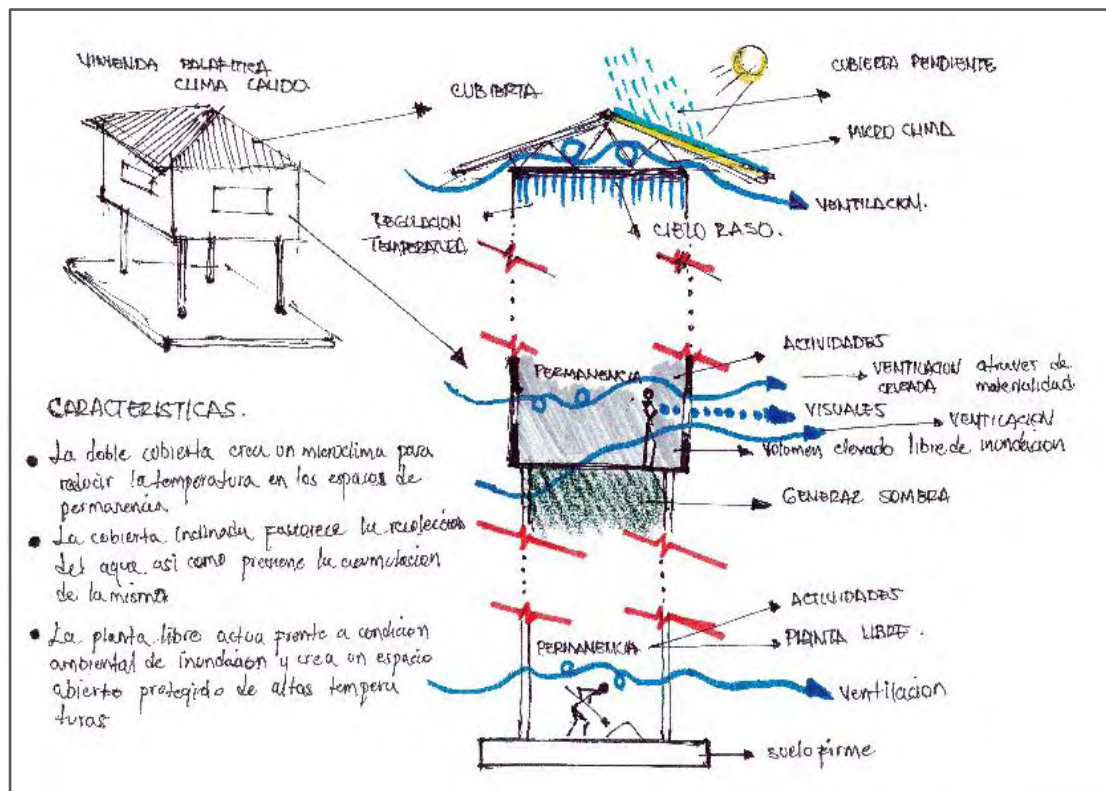 VIVIENDA PALAFITICA
CLIMA CALIDO.
CUBIERTA
CUBIERTA PENDIENTE
MICRO CLIMA
VENTILACION.
REGULACION
TEMPERATURA
CIELO RASO.
ACTIVIDADES
PERMANENCIA
VENTILACION atraves de
materialidad
VISUALES
VENTILACION
Volumen elevado libre de inundacion
GENERAR SOMBRA
ACTIVIDADES
PLANTA LIBRE.
PERMANENCIA
Ventilacion
suelo firme
CARACTERISTICAS.
La doble cubierta crea un microclima para
reducir la temperatura en los espacios de
permanencia
La cubierta inclinada favorece la recoleccion
del agua asi como previene la acumulacion
de la misma
La planta libre actua frente a condicion
ambiental de inundacion y crea un espacio
abierto protegido de altas tempera
turas